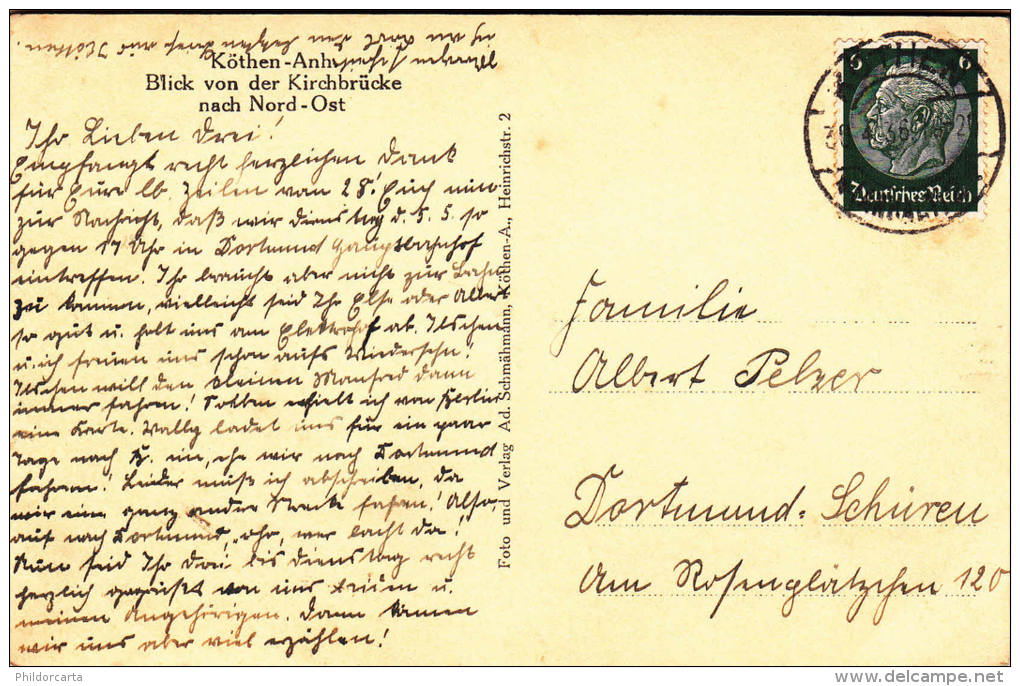 Köthen-Anh.
Blick von der Kirchbrücke
nach Nord-Ost
Ihr Lieben drei!
Empfangt recht herzlichen Dank
für Eure lb. Zeilen vom 28! Euch nun
zur Nachricht, daß wir dienstag d. 5. 5. so
gegen 17 Uhr in Dortmund Hauptbahnhof
eintreffen. Ihr braucht aber nicht zur Bahn
zu kommen, vielleicht seid Ihr Else oder Albert
so gut u. holt uns am ab. Ilschen
u. ich freuen uns schon aufs Wiedersehn!
Ilschen will den kleinen Manfred dann
immer fahren! Soeben erhielt ich von
eine Karte. Wally ladet uns für ein paar
Tage nach H. ein, ehe wir nach Dortmund
fahren! Leider muß ich abschreiben, da
wir eine ganz andere Strecke fahren! Also,
auf nach Dortmund, oho, wer lacht da!
Nun seid Ihr drei bis dienstag recht
herzlich gegrüßt von uns u.
meinen Angehörigen. Dann können
wir uns aber viel erzählen!
Foto und Verlag Ad. Schmähmann, Köthen-A., Heinrichstr. 2
6 6
Deutsches Reich
Familie
Albert Pelzer
Dortmund-Schüren
Am Rosenplätzchen 120
Phildorcarta
delcampe.net